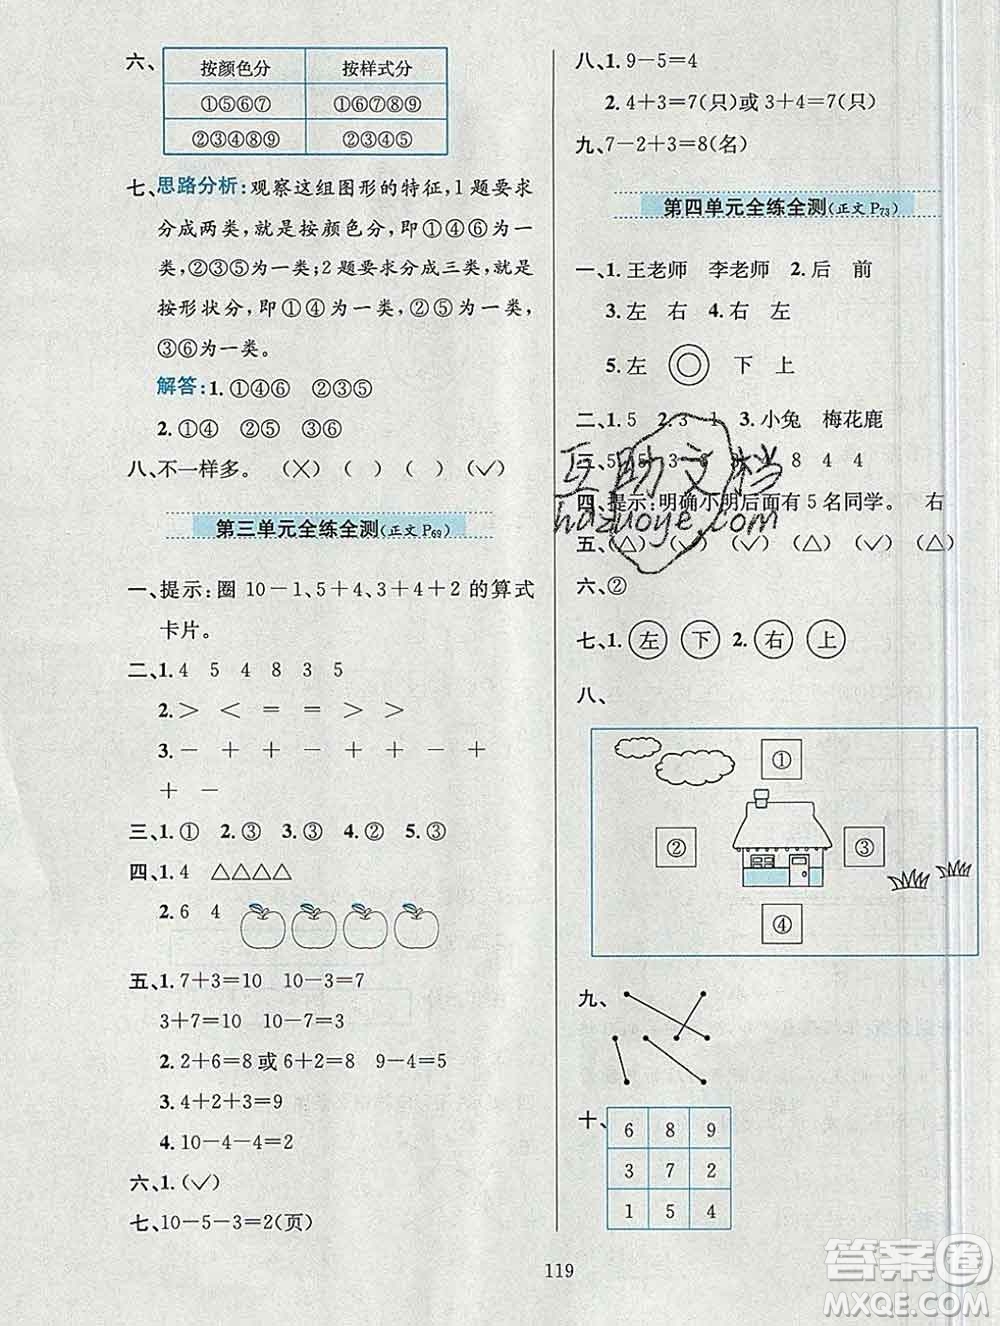 六、
按颜色分 按样式分
①⑤⑥⑦ ①④⑦⑧⑨
②③④⑧⑨ ②③④⑤
七、思路分析:观察这组图形的特征,1题要求
分成两类,就是按颜色分,即①④⑥为一
类,②③⑤为一类;2题要求分成三类,就是
按形状分,即①④为一类,②⑤为一类,
③⑥为一类。
解答:1.①④⑥ ②③⑤
2.①④ ②⑤ ③⑥
八、不一样多。 (×) ( ) ( ) (✓)
第三单元全练全测(正文P69)
一、提示:圈10-1、5+4、3+4+2的算式
卡片。
二、1.4 5 4 8 3 5
2.> < = = > >
3.- + + - - +
+ -
三、1.① 2.③ 3.③ 4.② 5.③
四、1.4 △△△△
2.6 4
五、1.7+3=10 10-3=7
3+7=10 10-7=3
2.2+6=8或6+2=8 9-4=5
3.4+2+3=9
4.10-4-4=2
六、1.(✓)
七、10-5-3=2(页)
八、1.9-5=4
2.4+3=7(只)或3+4=7(只)
九、7-2+3=8(名)
第四单元全练全测(正文P73)
一、1.王老师 李老师 2.后 前
3.左 右 4.右 左
5.左 ◎ 下 上
二、1.5 2.3 1 3.小兔 梅花鹿
三、5 5 3 8 4 4
四、提示:明确小明后面有5名同学。 右
五、(△) (✓) (✓) (△) (✓) (△)
六、②
七、1.左 下 2.右 上
八、
①
② ③
④
九、
十、
6 8 9
3 7 2
1 5 4
119
互助文档
hazuoye.com
答案圈
MXQE.COM